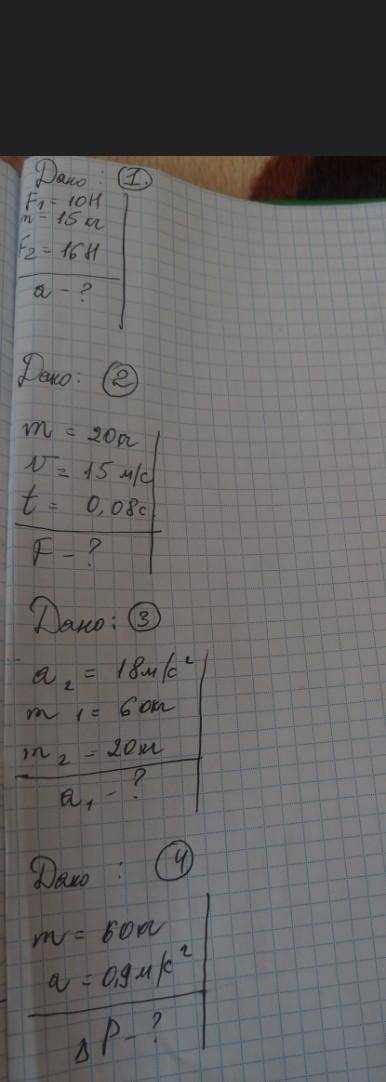 Дано: 1.
F1 = 10Н
m = 15 кг
F2 = 16Н
a - ?
Дано: 2
m = 20кг
v = 15 м/с
t = 0,08с
F - ?
Дано: 3
a2 = 18м/с²
m1 = 60кг
m2 = 20кг
a1 - ?
Дано : 4
m = 60кг
a = 0,9м/с²
ΔP - ?